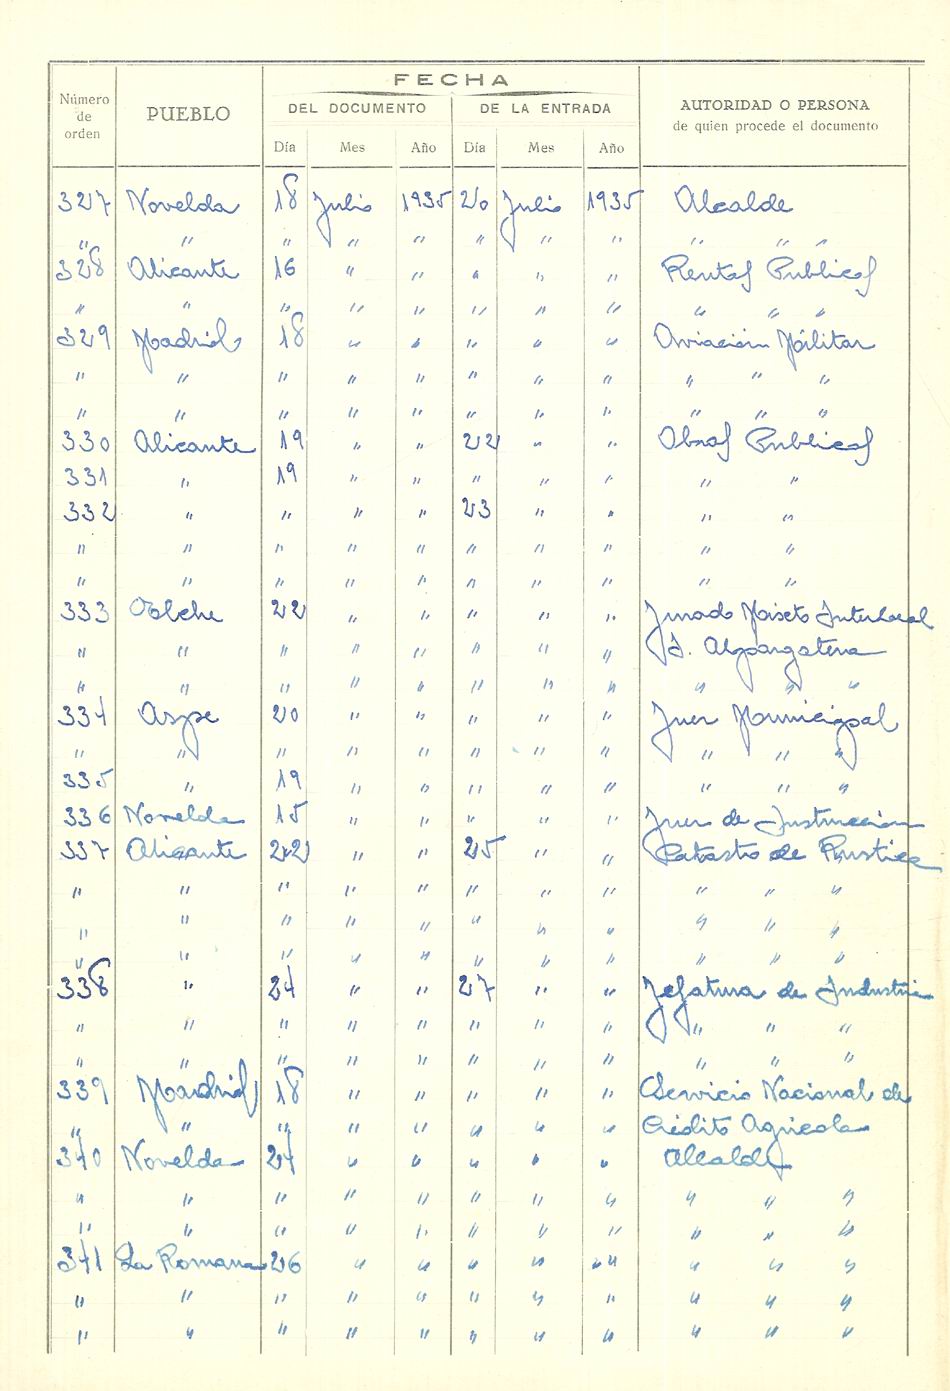 FECHA
Número de orden PUEBLO DEL DOCUMENTO DE LA ENTRADA AUTORIDAD O PERSONA de quien procede el documento
Día Mes Año Día Mes Año
327 Novelda 18 Julio 1935 20 Julio 1935 Alcalde
" " " " " " " " " " "
328 Alicante 16 " " " " " Rentas Publicas
" " " " " " " " " " "
329 Madrid 18 " " " " " Aviación Militar
" " " " " " " " " " "
" " " " " " " " " " "
330 Alicante 19 " " 22 " " Obras Publicas
331 " 19 " " " " " " "
332 " " " " 23 " " " "
" " " " " " " " " "
" " " " " " " " " "
333 Elche 22 " " " " " Jurado Mixto Interlocal
" " " " " " " " I. Alpargatera
" " " " " " " " " " "
334 Aspe 20 " " " " " Juez Municipal
" " " " " " " " " " "
335 " 19 " " " " " " " "
336 Novelda 15 " " " " " Juez de Instruccion
337 Alicante 22 " " 25 " " Catastro de Rustica
" " " " " " " " " " "
" " " " " " " " " " "
" " " " " " " " " " "
338 " 24 " " 27 " " Jefatura de Industria
" " " " " " " " " " "
" " " " " " " " " " "
339 Madrid 18 " " " " " Servicio Nacional de
" " " " " " " " Crédito Agricola
340 Novelda 24 " " " " " Alcalde
" " " " " " " " " " "
" " " " " " " " " " "
341 La Romana 26 " " " " " " " "
" " " " " " " " " " "
" " " " " " " " " " "